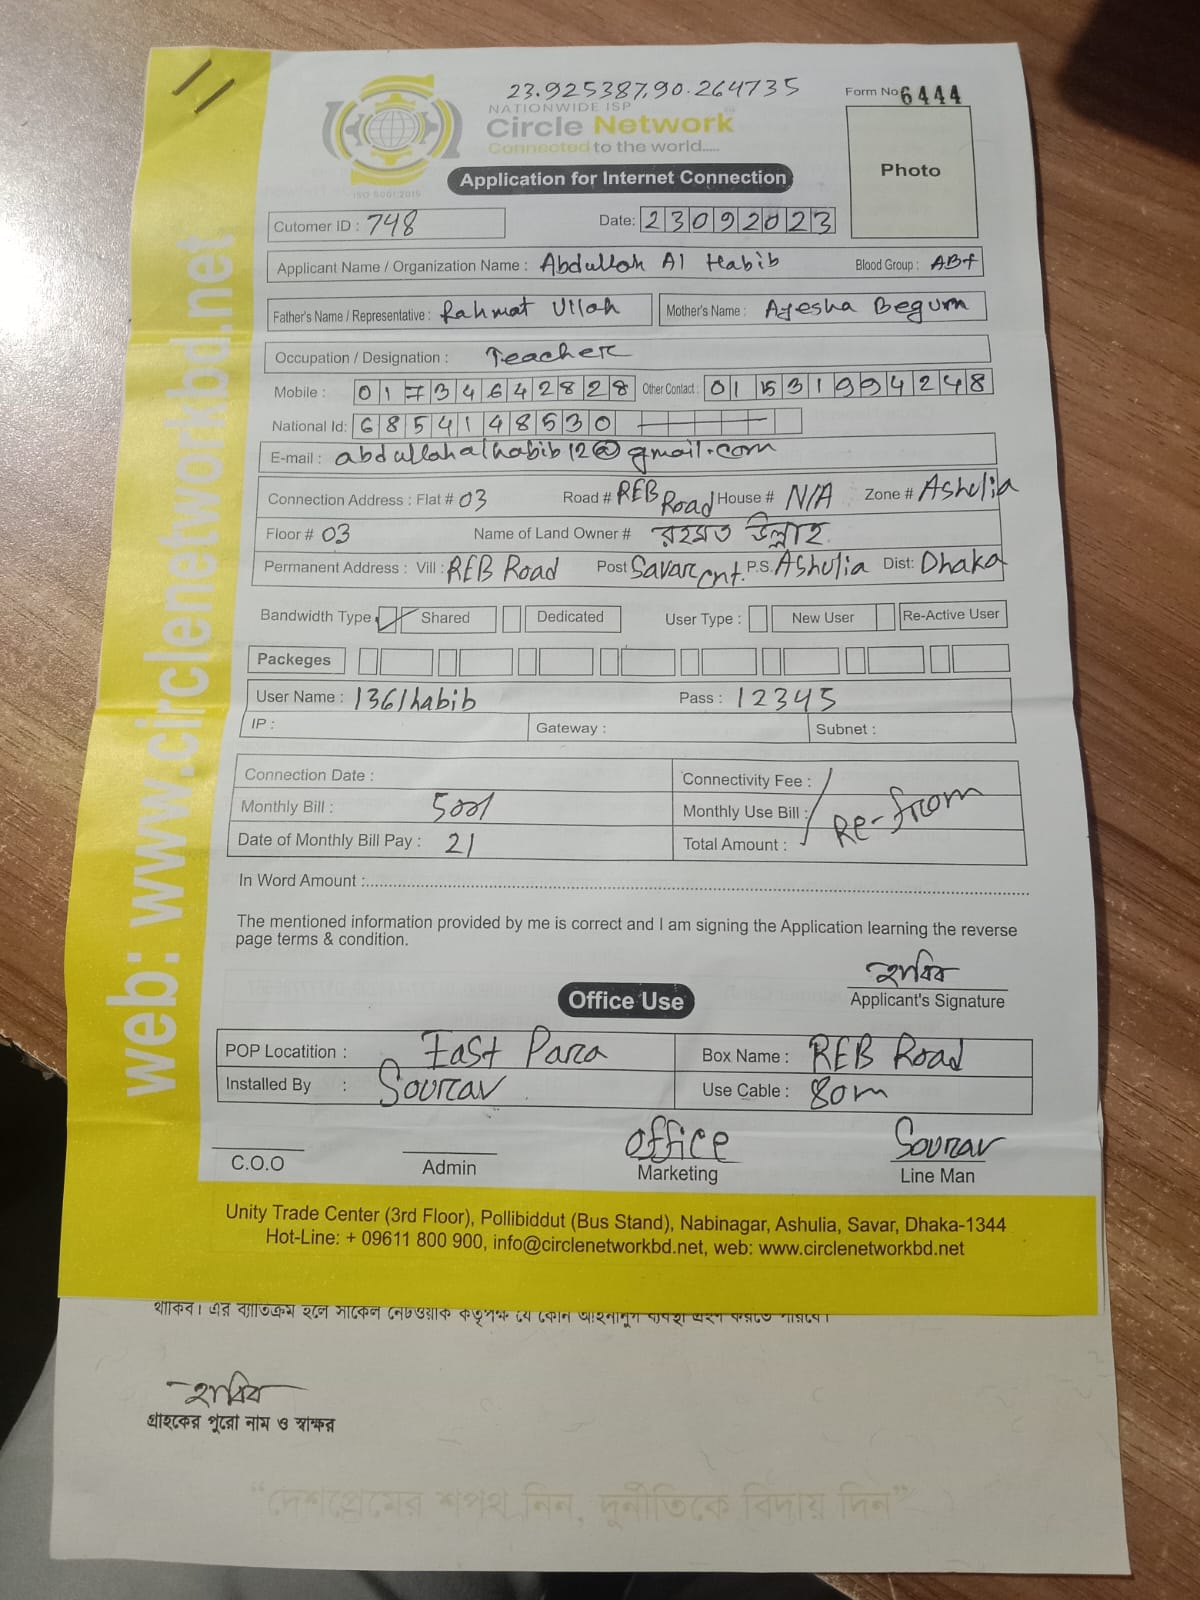 23.925387,90.264735
Form No 6444
NATIONWIDE ISP
Circle Network
Connected to the world.....
ISO 9001:2015
Photo
Application for Internet Connection
Cutomer ID : 748
Date: 23092023
Applicant Name / Organization Name : Abdullah Al Habib Blood Group : AB+
Father's Name / Representative : Rahmat Ullah Mother's Name : Ayesha Begum
Occupation / Designation : Teacher
Mobile : 01734642828 Other Contact : 01531994248
National Id: 6854148530
E-mail : abdullahalhabib12@gmail.com
Connection Address : Flat # 03 Road # REB Road House # N/A Zone # Ashulia
Floor # 03 Name of Land Owner # রহমত উল্লাহ
Permanent Address : Vill : REB Road Post Savar Cnt. P.S. Ashulia Dist: Dhaka
Bandwidth Type Shared Dedicated User Type : New User Re-Active User
Packeges
User Name : 1361habib Pass : 12345
IP : Gateway : Subnet :
Connection Date : Connectivity Fee :
Monthly Bill : 500/ Monthly Use Bill : Re-from
Date of Monthly Bill Pay : 21 Total Amount :
In Word Amount :
The mentioned information provided by me is correct and I am signing the Application learning the reverse
page terms & condition.
হাবিব
Applicant's Signature
Office Use
POP Locatition : East Para Box Name : REB Road
Installed By : Sourav Use Cable : 80m
Office Sourav
C.O.O Admin Marketing Line Man
Unity Trade Center (3rd Floor), Pollibiddut (Bus Stand), Nabinagar, Ashulia, Savar, Dhaka-1344
Hot-Line: + 09611 800 900, info@circlenetworkbd.net, web: www.circlenetworkbd.net
web: www.circlenetworkbd.net
থাকিব। এর ব্যতিক্রম হলে সার্কেল নেটওয়ার্ক কর্তৃপক্ষ যে কোন আইনানুগ ব্যবস্থা গ্রহণ করতে পারবে।
হাবিব
গ্রাহকের পুরো নাম ও স্বাক্ষর
“দেশপ্রেমের শপথ নিন, দুর্নীতিকে বিদায় দিন”